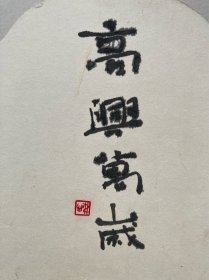 高興萬歲